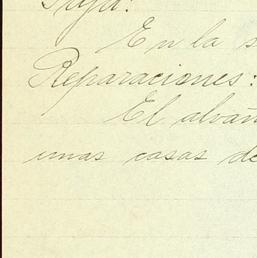 En la s
Reparaciones:
El alvañ
unas casas de